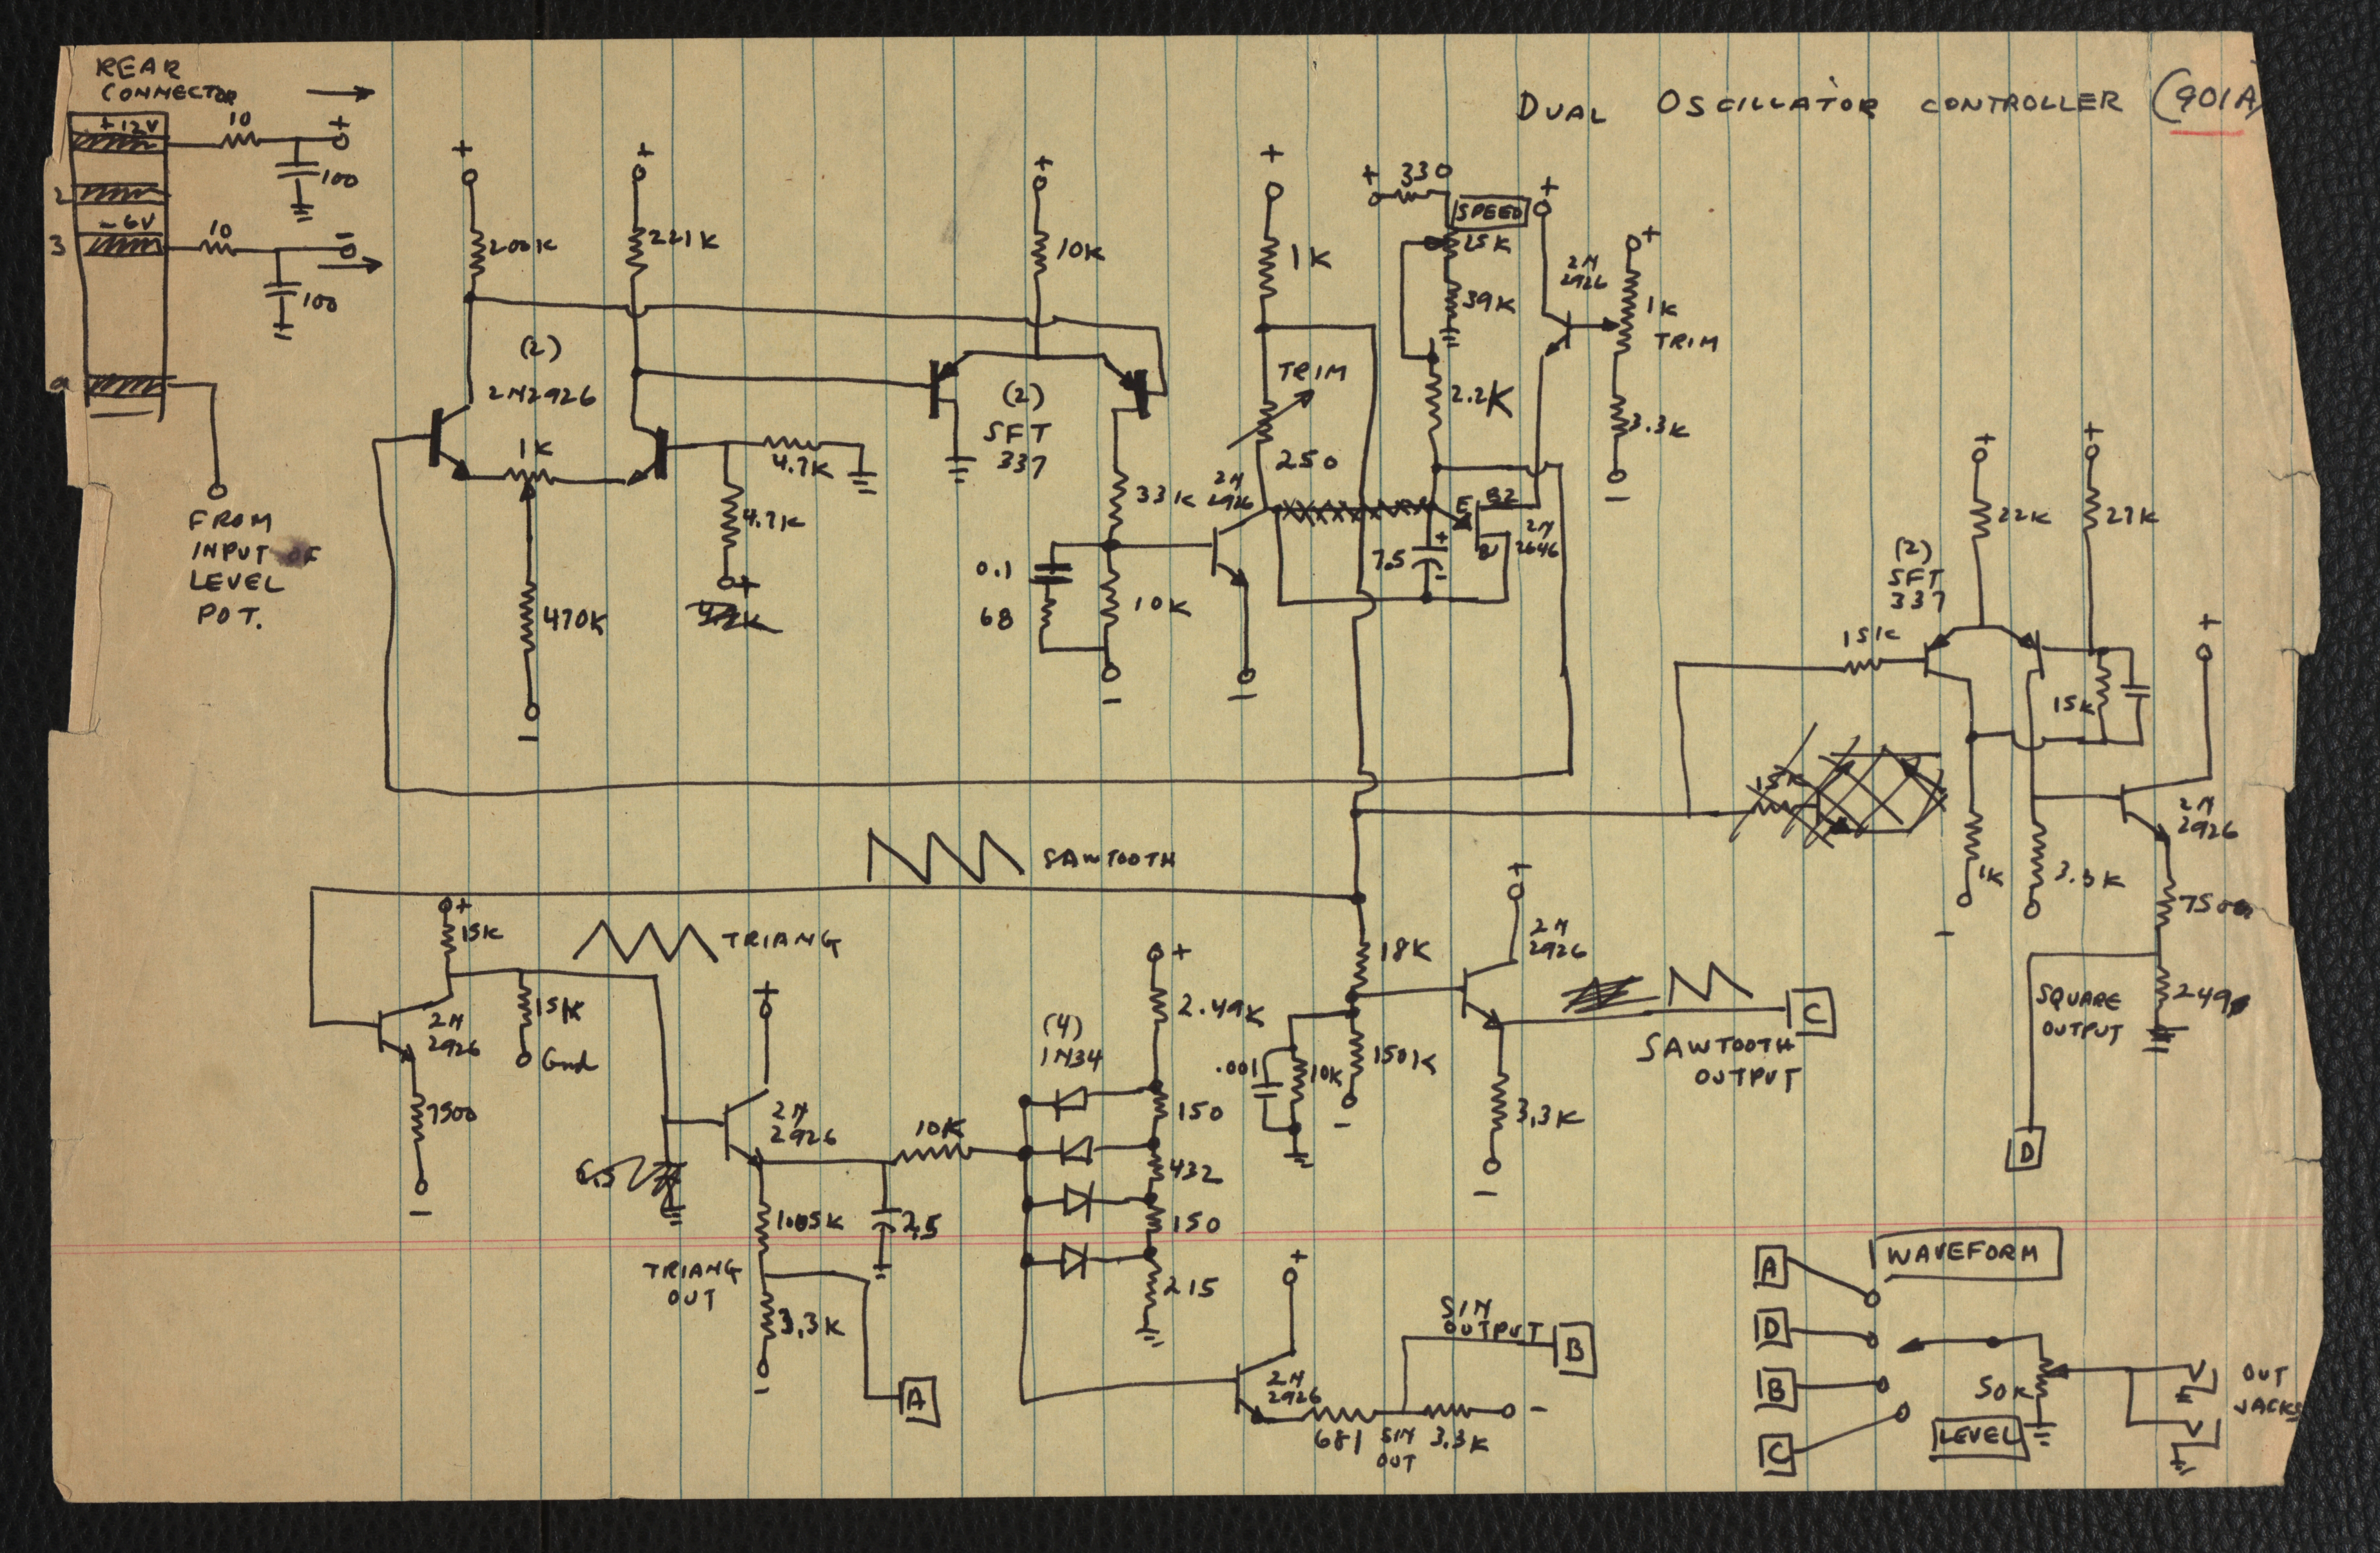 DUAL OSCILLATOR CONTROLLER (901A)
REAR
CONNECTOR
+12V
10
+
100
2
-6V
3
10
-
100
9
FROM
INPUT OF
LEVEL
POT.
+
200K
+
221K
(2)
2N2926
1K
4.7K
4.7K
+
470K
-
+
10K
(2)
SFT
337
33K
0.1
68
10K
-
+
1K
TRIM
250
2N
2926
-
+ 330
SPEED
25K
39K
2.2K
7.5
+
-
E
B2
B1
2N
2646
+
2N
2926
+
1K
TRIM
3.3K
-
+
22K
+
27K
(2)
SFT
337
15K
15K
15K
1K
-
3.3K
+
2N
2926
750
249
SQUARE
OUTPUT
D
SAWTOOTH
TRIANG
+
15K
15K
Gnd
2N
2926
7500
-
+
2N
2926
10K
1.05K
2.5
TRIANG
OUT
3.3K
-
A
(4)
1N34
+
2.49K
150
432
150
215
18K
.001
10K
150K
-
+
2N
2926
3.3K
-
SAWTOOTH
OUTPUT
C
+
2N
2926
681
SIN
OUT
3.3K
-
SIN
OUTPUT
B
WAVEFORM
A
D
B
C
50K
LEVEL
OUT
JACKS